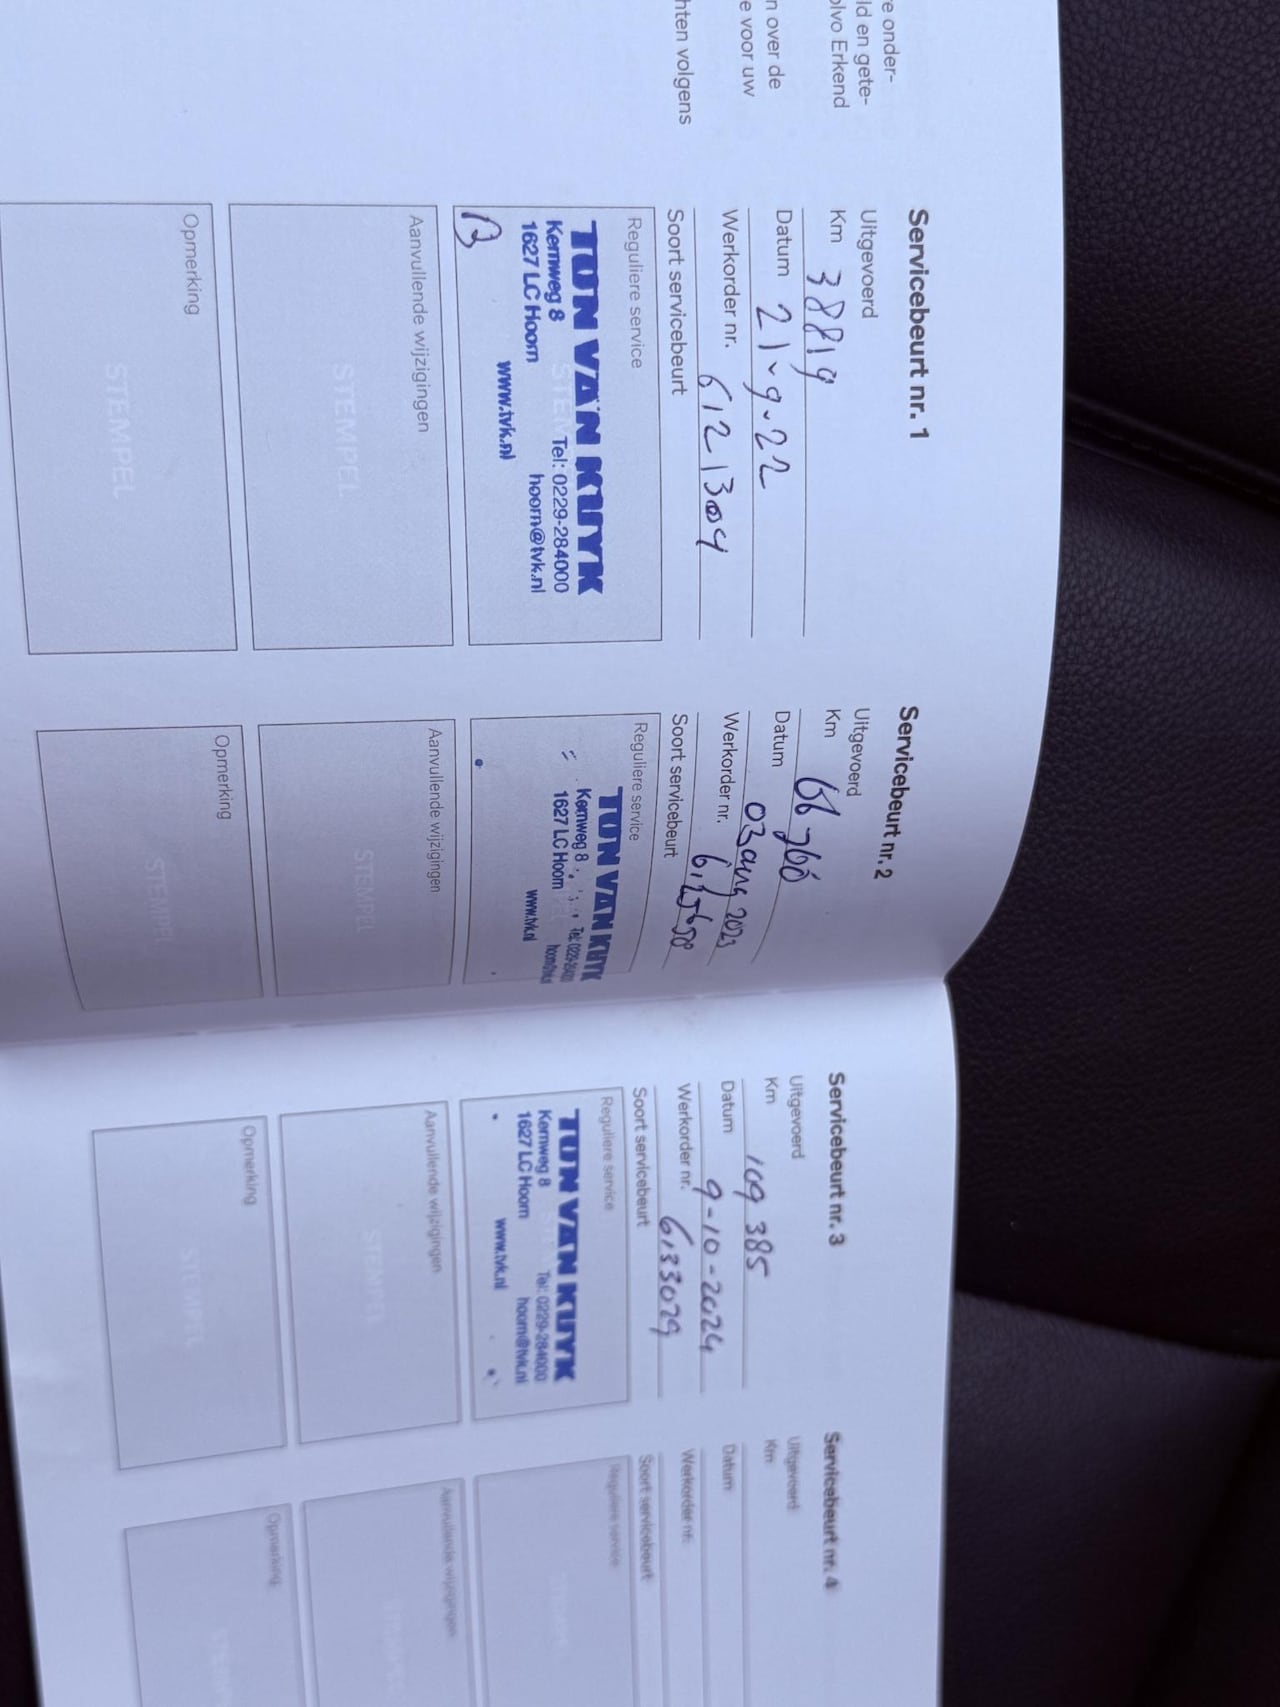 e onder-
ld en gete-
olvo Erkend
n over de
e voor uw
hten volgens
Servicebeurt nr. 1
Uitgevoerd
Km 38819
Datum 21-9-22
Werkorder nr. 6121304
Soort servicebeurt
Reguliere service
TON VAN KUYK
Kernweg 8 Tel: 0229-284000
1627 LC Hoorn hoorn@tvk.nl
www.tvk.nl
Aanvullende wijzigingen
STEMPEL
Opmerking
STEMPEL
Servicebeurt nr. 2
Uitgevoerd
Km
Datum 03 aug 2023
Werkorder nr.
Soort servicebeurt
Reguliere service
TON VAN KUYK
Kernweg 8
1627 LC Hoorn hoorn@tvk.nl
www.tvk.nl
Aanvullende wijzigingen
STEMPEL
Opmerking
STEMPEL
Servicebeurt nr. 3
Uitgevoerd
Km 109 385
Datum 9-10-2024
Werkorder nr. 6133029
Soort servicebeurt
Reguliere service
TON VAN KUYK
Kernweg 8 Tel: 0229-284000
1627 LC Hoorn hoorn@tvk.nl
www.tvk.nl
Aanvullende wijzigingen
STEMPEL
Opmerking
STEMPEL
Servicebeurt nr. 4
Uitgevoerd
Km
Datum
Werkorder nr.
Soort servicebeurt
Reguliere service
Aanvullende wijzigingen
STEMPEL
Opmerking
STEMPEL